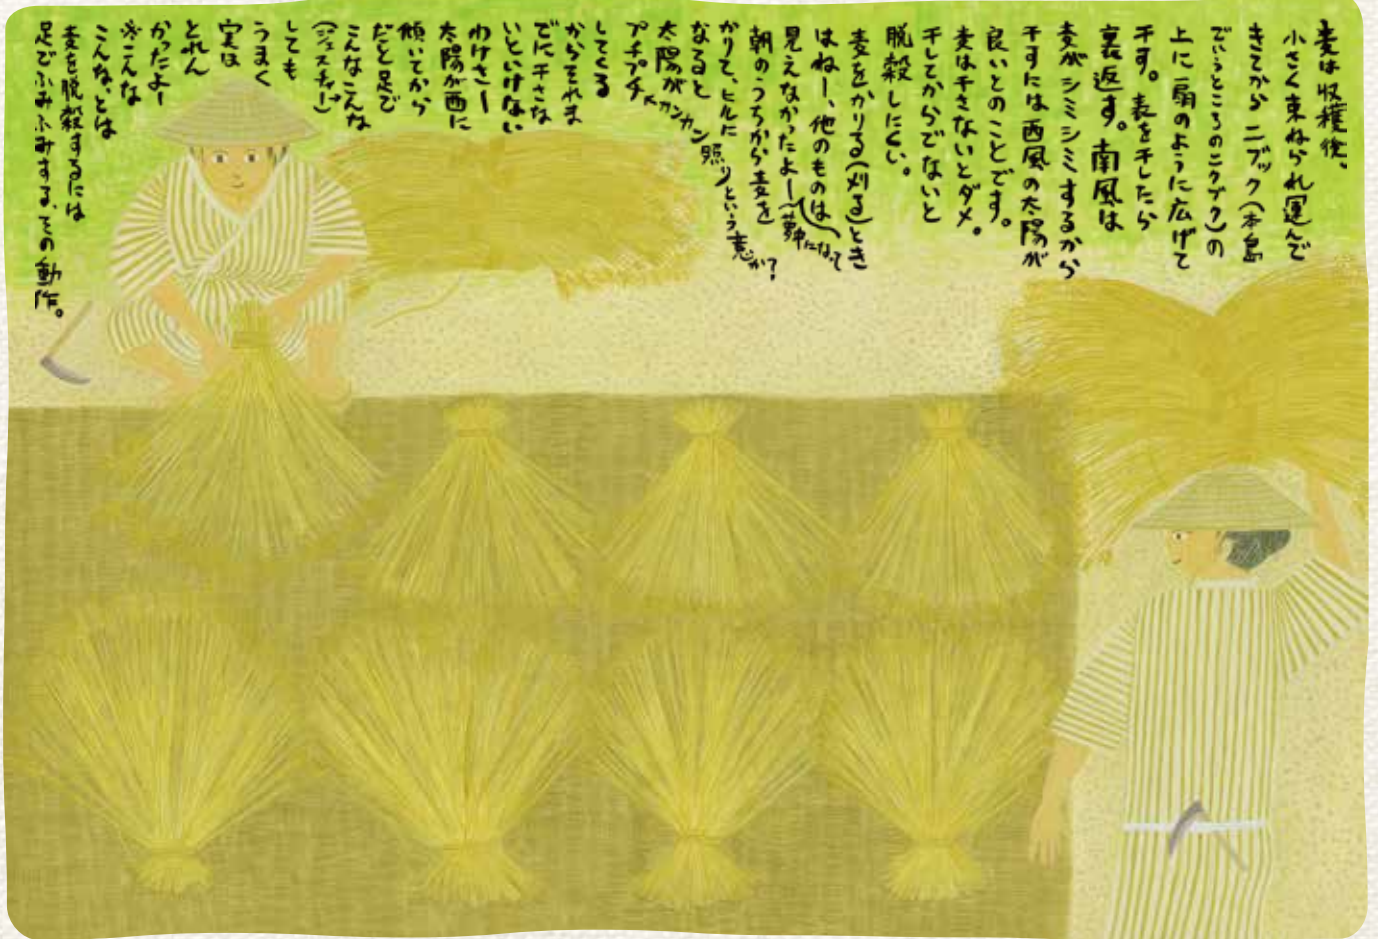 麦は収穫後、
小さく束ねられ運んで
きてから ニブック(本島
でいうところのニクブク)の
上に扇のように広げて
干す。表を干したら
裏返す。南風は
麦がシミシミするから
干すには西風の太陽が
良いとのことです。
麦は干さないとダメ。
干してからでないと
脱穀しにくい。
麦をかりる(刈る)とき
はねー、他のものは
見えなかったよー(夢中になって)
朝のうちから麦を
かりて、ヒルに
なると
太陽が
プチプチ
(カンカン照りという意か?)
してくる
からそれま
でに干さな
いといけない
わけさー
太陽が西に
傾いてから
だと足で
こんなこんな
(ジェスチャー)
しても
うまく
実は
とれん
かったよー
※こんな
こんな、とは
麦を脱穀するには
足でふみふみする、その動作。